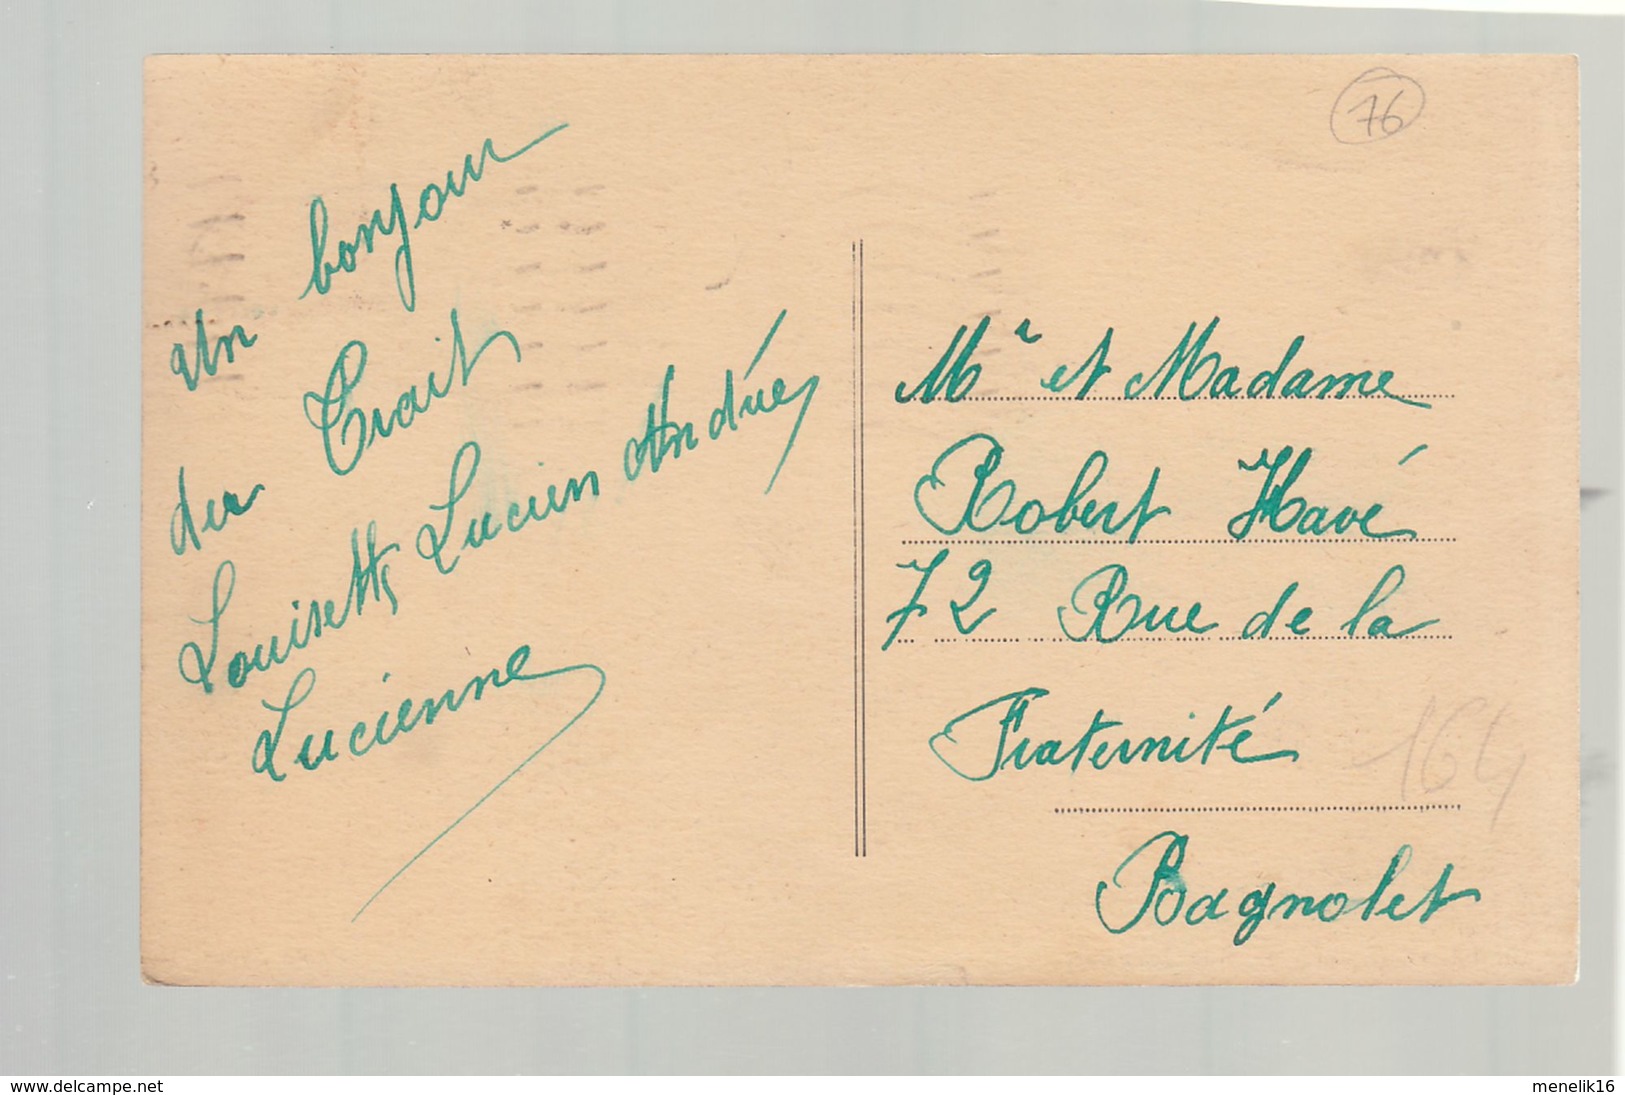 Un bonjour
du Trait
Louisette Lucien Andrée
Lucienne
76
Mr et Madame
Robert Havé
72 Rue de la
Fraternité
164
Bagnolet
www.delcampe.net
menelik16